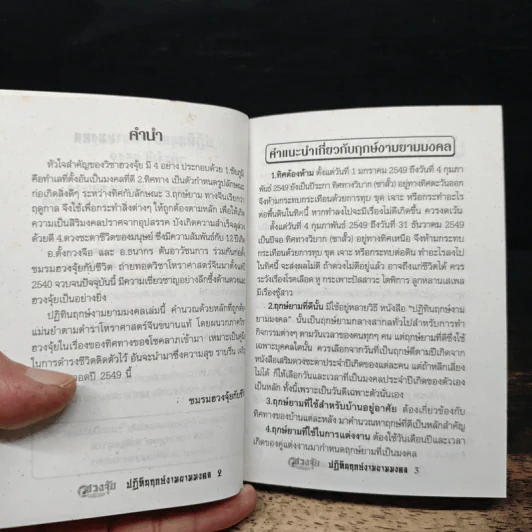 คำนำ
หัวใจสำคัญของวิชาฮวงจุ้ย มี 4 อย่าง ประกอบด้วย 1.ชัยภูมิ
คือทำเลที่ตั้งอันเป็นมงคลที่ดี 2.ทิศทาง เป็นตัวกำหนดรูปลักษณะ
ก่อเกิดสิ่งดีๆ ระหว่างทิศกับลักษณะ 3.ฤกษ์ยาม ทางจีนเรียกว่า
ฤดูกาล จึงใช้เพื่อกระทำสิ่งต่างๆ ให้ถูกต้องตามหลัก เพื่อให้เกิด
ความเป็นสิริมงคลปราศจากอุปสรรค บังเกิดความสำเร็จลุล่วง
ด้วยดี 4.ดวงชะตาชีวิตของมนุษย์ ซึ่งมีความสัมพันธ์กับ 12
อ.ตั้งกวงจือ และ อ.ธนากร ตันอาวัชนการ ร่วมกันก่อตั้ง
ชมรมฮวงจุ้ยกับชีวิต ถ่ายทอดวิชาโหราศาสตร์จีนมาตั้งแต่
2540 จวบจนปัจจุบันนี้ มีความเชี่ยวชาญอย่างลึกซึ้งด้านดวง
ฮวงจุ้ยเป็นอย่างยิ่ง
ปฏิทินฤกษ์งามยามมงคลเล่มนี้ คำนวณด้วยหลักที่ถูกต้อง
แม่นยำตามตำราโหราศาสตร์จีนขนานแท้ โดยผนวกภาควิชา
ฮวงจุ้ยในเรื่องของทิศทางของโชคลาภเข้ามา เหมาะเป็นคู่มือ
ในการดำรงชีวิตติดตัวไว้ อันจะนำมาซึ่งความสุข ราบรื่น
ตลอดปี 2549 นี้
ชมรมฮวงจุ้ยกับชีวิต
ฮวงจุ้ย ปฏิทินฤกษ์งามยามมงคล 2
คำแนะนำเกี่ยวกับฤกษ์งามยามมงคล
1.ทิศต้องห้าม ตั้งแต่วันที่ 1 มกราคม 2549 ถึงวันที่ 4 กุมภา
พันธ์ 2549 ยังเป็นปีระกา ทิศทางวิบาก (ซาสั้ว) อยู่ทางทิศตะวันออก
จึงห้ามกระทบกระเทือนด้วยการทุบ ขุด เจาะ หรือก่อกระทำอะไร
ต่อพื้นดินในทิศนี้ หากทำลงไปจะมีเรื่องไม่ดีเกิดขึ้น ควรงดเว้น
ตั้งแต่วันที่ 4 กุมภาพันธ์ 2549 ถึงวันที่ 31 ธันวาคม 2549
เป็นปีจอ ทิศทางวิบาก (ซาสั้ว) อยู่ทางทิศเหนือ จึงห้ามกระทบ
กระเทือนด้วยการทุบ ขุด เจาะ หรือกระทบต่อดิน ทำอะไรลงไป
ในทิศนี้ จะส่งผลไม่ดี ถ้าดวงไม่ดีอยู่แล้ว อาจถึงแก่ชีวิตได้ ควร
ระวังเรื่องโรคเลือด หู กระเพาะปัสสาวะ ไตพิการ ลูกหลานเสเพล
มีเรื่องชู้สาว
2.ฤกษ์ยามที่ดีนั้น มีใช้อยู่หลายวิธี หนังสือ "ปฏิทินฤกษ์งาม
ยามมงคล" นั้นเป็นฤกษ์ยามกลางสากลทั่วไปสำหรับการทำ
กิจกรรมต่างๆ ตามวันเวลาของคนทุกๆ คน แต่ฤกษ์ยามที่ดีซึ่งใช้
เฉพาะบุคคลใดนั้น ควรเลือกจากวันที่เป็นฤกษ์ดีตามปีเกิดจาก
หนังสือเสริมดวงชะตาประจำปีเกิดของแต่ละคน แต่ถ้าหลีกเลี่ยง
ไม่ได้ ก็ให้เลือกวันและเวลาที่เป็นมงคลประจำปีเกิดของตัวเอง
เป็นหลัก ทั้งนี้เพราะเป็นวันดีเฉพาะตัวนั่นเอง
3.ฤกษ์ยามที่ใช้สำหรับบ้านอยู่อาศัย ต้องเกี่ยวข้องกับ
ทิศทางของบ้านแต่ละหลัง มาคำนวณหาฤกษ์ที่ดีเป็นหลักสำคัญ
4.ฤกษ์ยามที่ใช้ในการแต่งงาน ต้องใช้วันเดือนปีและเวลา
เกิดของคู่แต่งงานมากำหนดฤกษ์ยามที่เป็นมงคล
ฮวงจุ้ย ปฏิทินฤกษ์งามยามมงคล 3